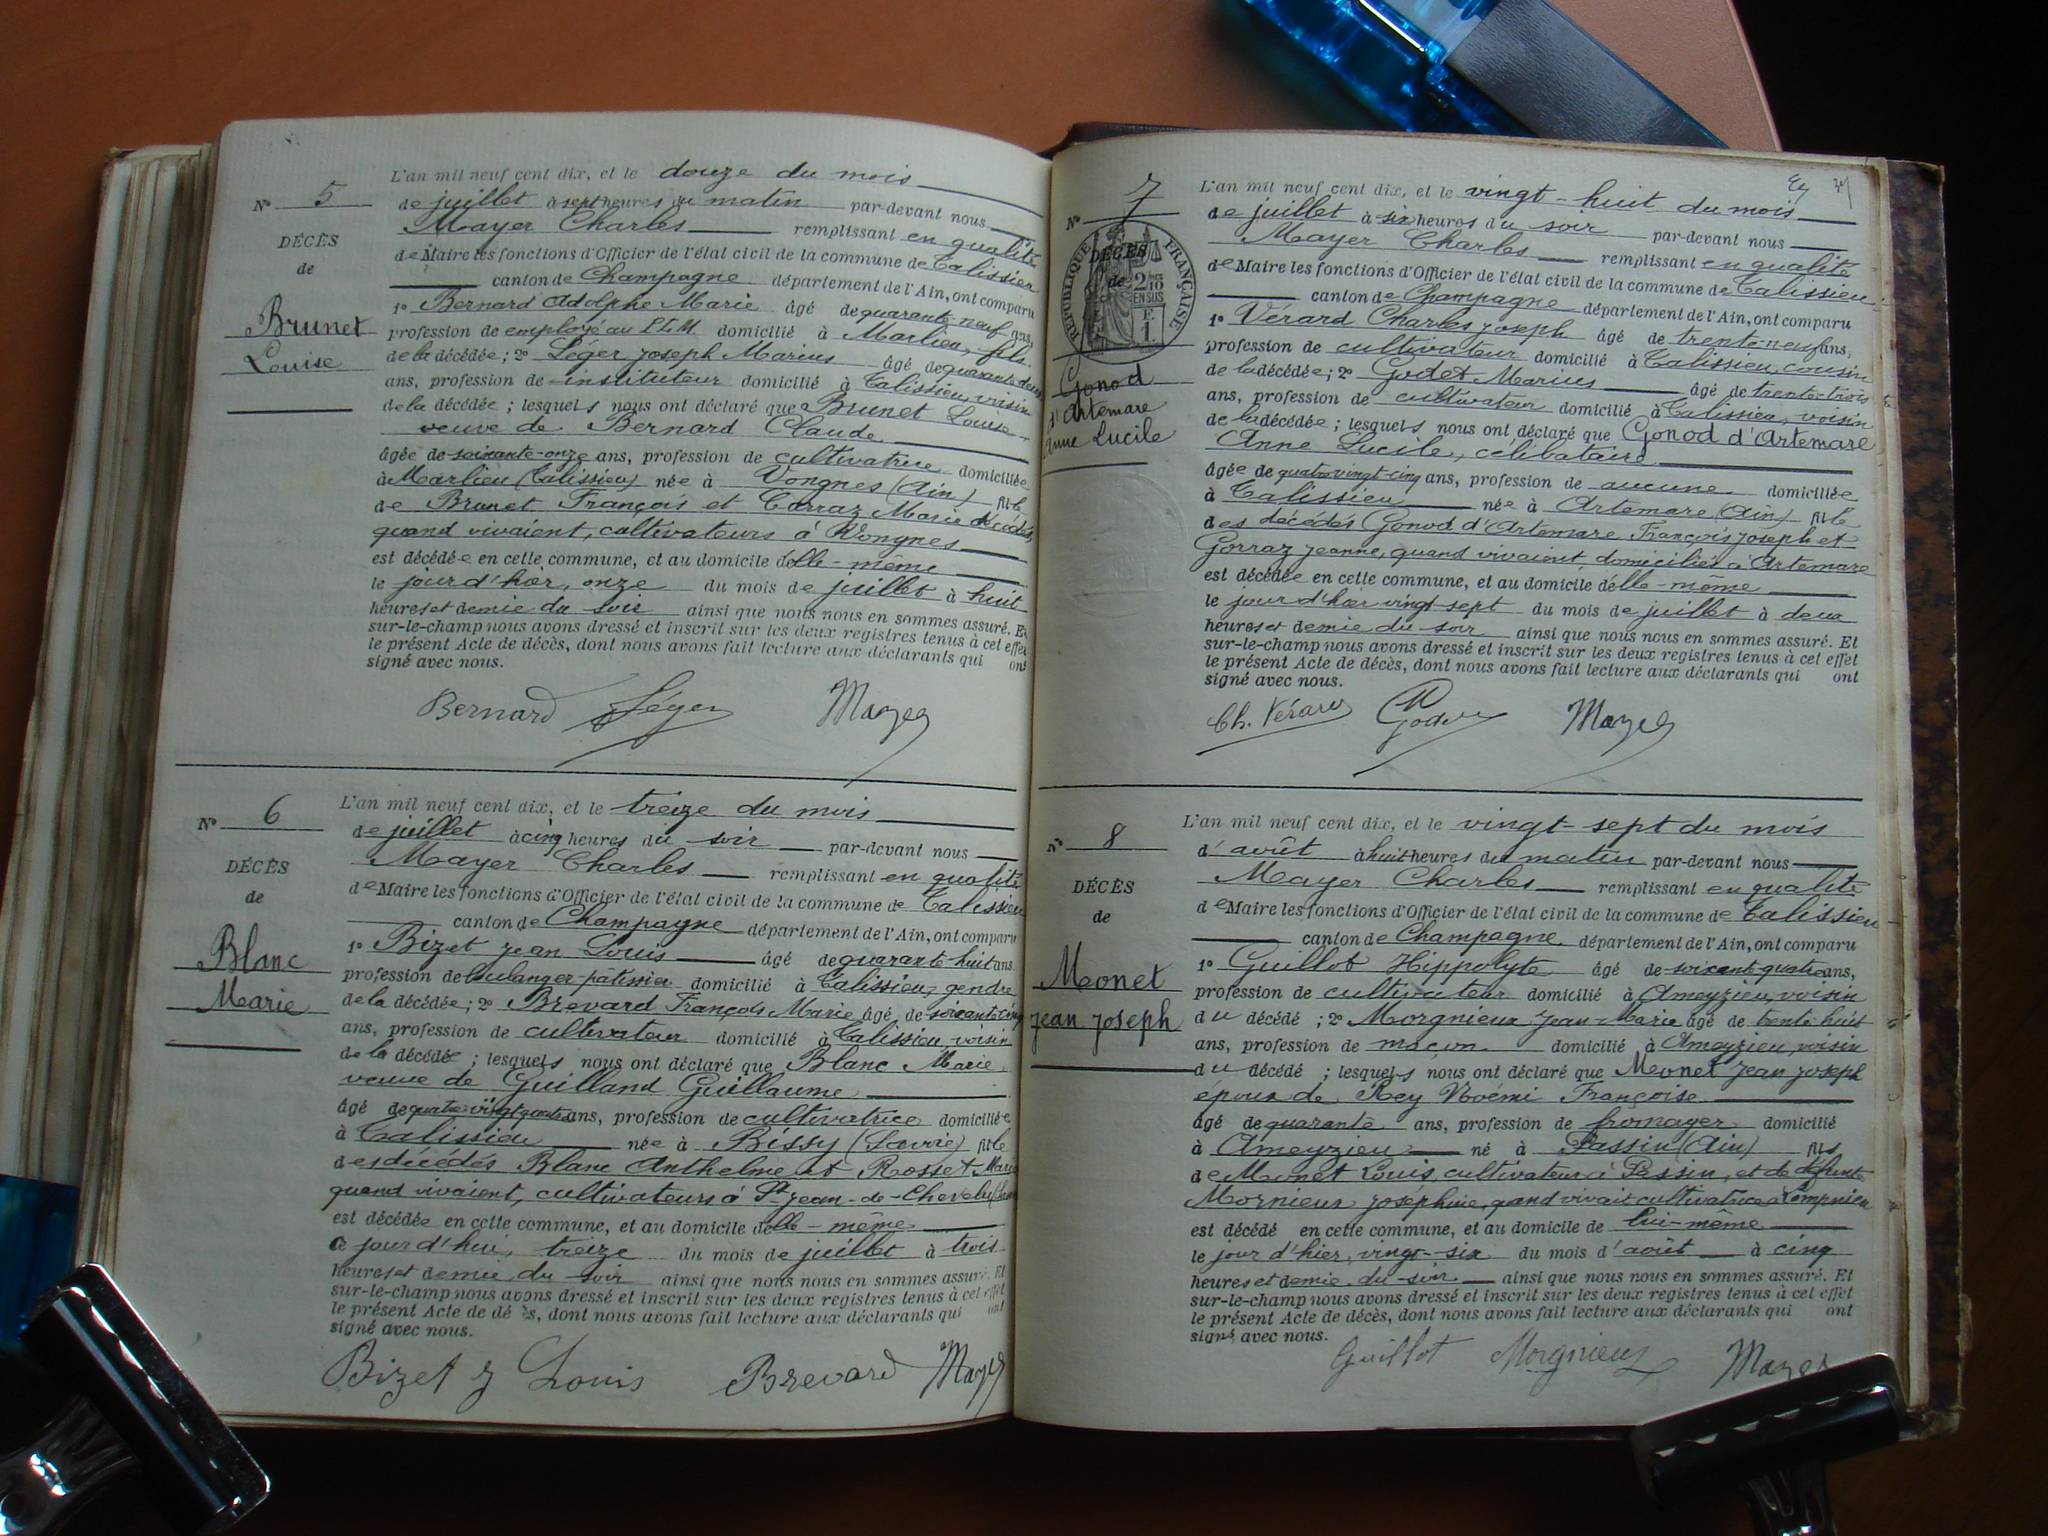 N° 5
DÉCÈS
de
Brunet
Louise
L'an mil neuf cent dix, et le douze du mois
de juillet à sept heures du matin par-devant nous
Mayer Charles remplissant en qualité
de Maire les fonctions d'Officier de l'état civil de la commune de Talissieu
canton de Champagne département de l'Ain, ont comparu
1° Bernard Adolphe Marie âgé de quarante-neuf ans,
profession de employé au P.L.M. domicilié à Marlieu, fils
de la décédée ; 2° Léger Joseph Marius âgé de quarante-deux
ans, profession de instituteur domicilié à Talissieu, voisin
de la décédée ; lesquels nous ont déclaré que Brunet Louise
veuve de Bernard Claude
âgée de soixante-onze ans, profession de cultivatrice domiciliée
à Marlieu (Talissieu) née à Vongnes (Ain) fille
de Brunet François et Carraz Marie décédés,
quand vivaient, cultivateurs à Vongnes
est décédée en cette commune, et au domicile d'elle-même
le jour d'hier, onze du mois de juillet à huit
heures et demie du soir ainsi que nous nous en sommes assuré. Et
sur-le-champ nous avons dressé et inscrit sur les deux registres tenus à cet effet
le présent Acte de décès, dont nous avons fait lecture aux déclarants qui ont
signé avec nous.
Bernard Léger Mayer
N° 6
DÉCÈS
de
Blanc
Marie
L'an mil neuf cent dix, et le treize du mois
de juillet à cinq heures du soir par-devant nous
Mayer Charles remplissant en qualité
de Maire les fonctions d'Officier de l'état civil de la commune de Talissieu
canton de Champagne département de l'Ain, ont comparu
1° Bizet Jean Louis âgé de quarante-huit ans
profession de boulanger-pâtissier domicilié à Talissieu, gendre
de la décédée ; 2° Brevard François Marie âgé de soixante-cinq
ans, profession de cultivateur domicilié à Talissieu, voisin
de la décédée ; lesquels nous ont déclaré que Blanc Marie
veuve de Guilland Guillaume
âgé de quatre-vingt-quatre ans, profession de cultivatrice domiciliée
à Talissieu née à Bissy (Savoie) fille
des décédés Blanc Anthelme et Rosset Marie
quand vivaient, cultivateurs à St Jean-de-Chevelu
est décédée en cette commune, et au domicile d'elle-même
ce jour d'hui, treize du mois de juillet à trois
heures et demie du soir ainsi que nous nous en sommes assuré. Et
sur-le-champ nous avons dressé et inscrit sur les deux registres tenus à cet effet
le présent Acte de décès, dont nous avons fait lecture aux déclarants qui ont
signé avec nous.
Bizet J Louis Brevard Mayer
N° 7
RÉPUBLIQUE FRANÇAISE
2/10 EN SUS
DÉCÈS
de
Gonod
d'Artemare
Anne Lucile
L'an mil neuf cent dix, et le vingt-huit du mois
de juillet à six heures du soir par-devant nous
Mayer Charles remplissant en qualité
de Maire les fonctions d'Officier de l'état civil de la commune de Talissieu
canton de Champagne département de l'Ain, ont comparu
1° Vérard Charles Joseph âgé de trente-neuf ans,
profession de cultivateur domicilié à Talissieu, cousin
de la décédée ; 2° Godet Marius âgé de trente-trois
ans, profession de cultivateur domicilié à Talissieu, voisin
de la décédée ; lesquels nous ont déclaré que Gonod d'Artemare
Anne Lucile, célibataire
âgée de quatre-vingt-cinq ans, profession de aucune domiciliée
à Talissieu née à Artemare (Ain) fille
des décédés Gonod d'Artemare François Joseph et
Gorraz Jeanne, quand vivaient, domiciliés à Artemare
est décédée en cette commune, et au domicile d'elle-même
le jour d'hier vingt-sept du mois de juillet à deux
heures et demie du soir ainsi que nous nous en sommes assuré. Et
sur-le-champ nous avons dressé et inscrit sur les deux registres tenus à cet effet
le présent Acte de décès, dont nous avons fait lecture aux déclarants qui ont
signé avec nous.
Ch. Vérard Godet Mayer
N° 8
DÉCÈS
de
Monet
Jean Joseph
L'an mil neuf cent dix, et le vingt-sept du mois
d'août à huit heures du matin par-devant nous
Mayer Charles remplissant en qualité
de Maire les fonctions d'Officier de l'état civil de la commune de Talissieu
canton de Champagne département de l'Ain, ont comparu
1° Guillot Hippolyte âgé de soixante-quatre ans,
profession de cultivateur domicilié à Ameyzieu, voisin
du décédé ; 2° Morgnieux Jean-Marie âgé de trente-huit
ans, profession de maçon domicilié à Ameyzieu, voisin
du décédé ; lesquels nous ont déclaré que Monet Jean Joseph
époux de Rey Noémi Françoise
âgé de quarante ans, profession de fromager domicilié
à Ameyzieu né à Passin (Ain) fils
de Monet Louis, cultivateur à Passin, et de défunte
Mornieux Joséphine, quand vivait cultivatrice à Lompnieu
est décédé en cette commune, et au domicile de lui-même
le jour d'hier, vingt-six du mois d'août à cinq
heures et demie du soir ainsi que nous nous en sommes assuré. Et
sur-le-champ nous avons dressé et inscrit sur les deux registres tenus à cet effet
le présent Acte de décès, dont nous avons fait lecture aux déclarants qui ont
signé avec nous.
Guillot Morgnieux Mayer